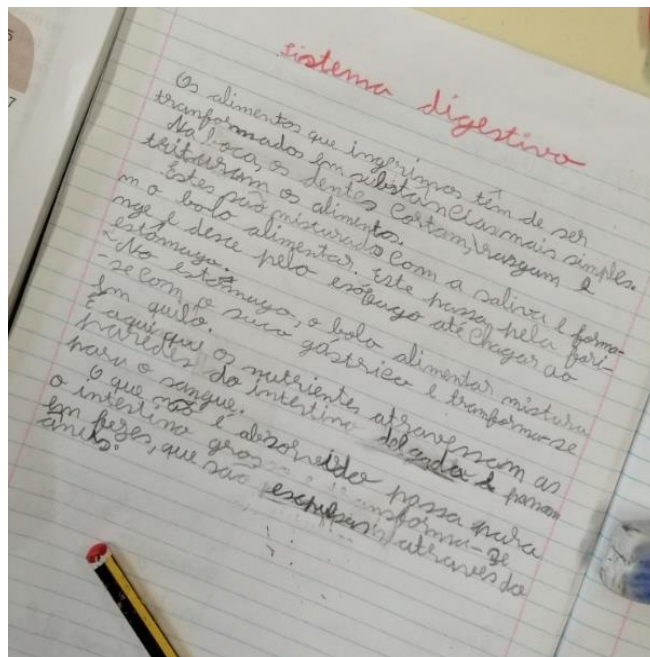 sistema digestivo
Os alimentos que ingerimos têm de ser
tranformados em substâncias mais simples.
Na boca, os dentes cortam, rasgam e
trituram os alimentos.
Estes são misturados com a saliva e forma-
m o bolo alimentar. Este passa pela fari-
nge e desce pelo esôfago até chegar ao
estômago.
No estômago, o bolo alimentar mistura
-se com o suco gástrico e tranforma-se
em quilo.
É aqui que os nutrientes atravessam as
paredes do intestino delgado e passam
para o sangue.
O que não é absorvido passa para
o intestino grosso e transforma-se
em fezes, que são expulsas através do
ânus.
5
7